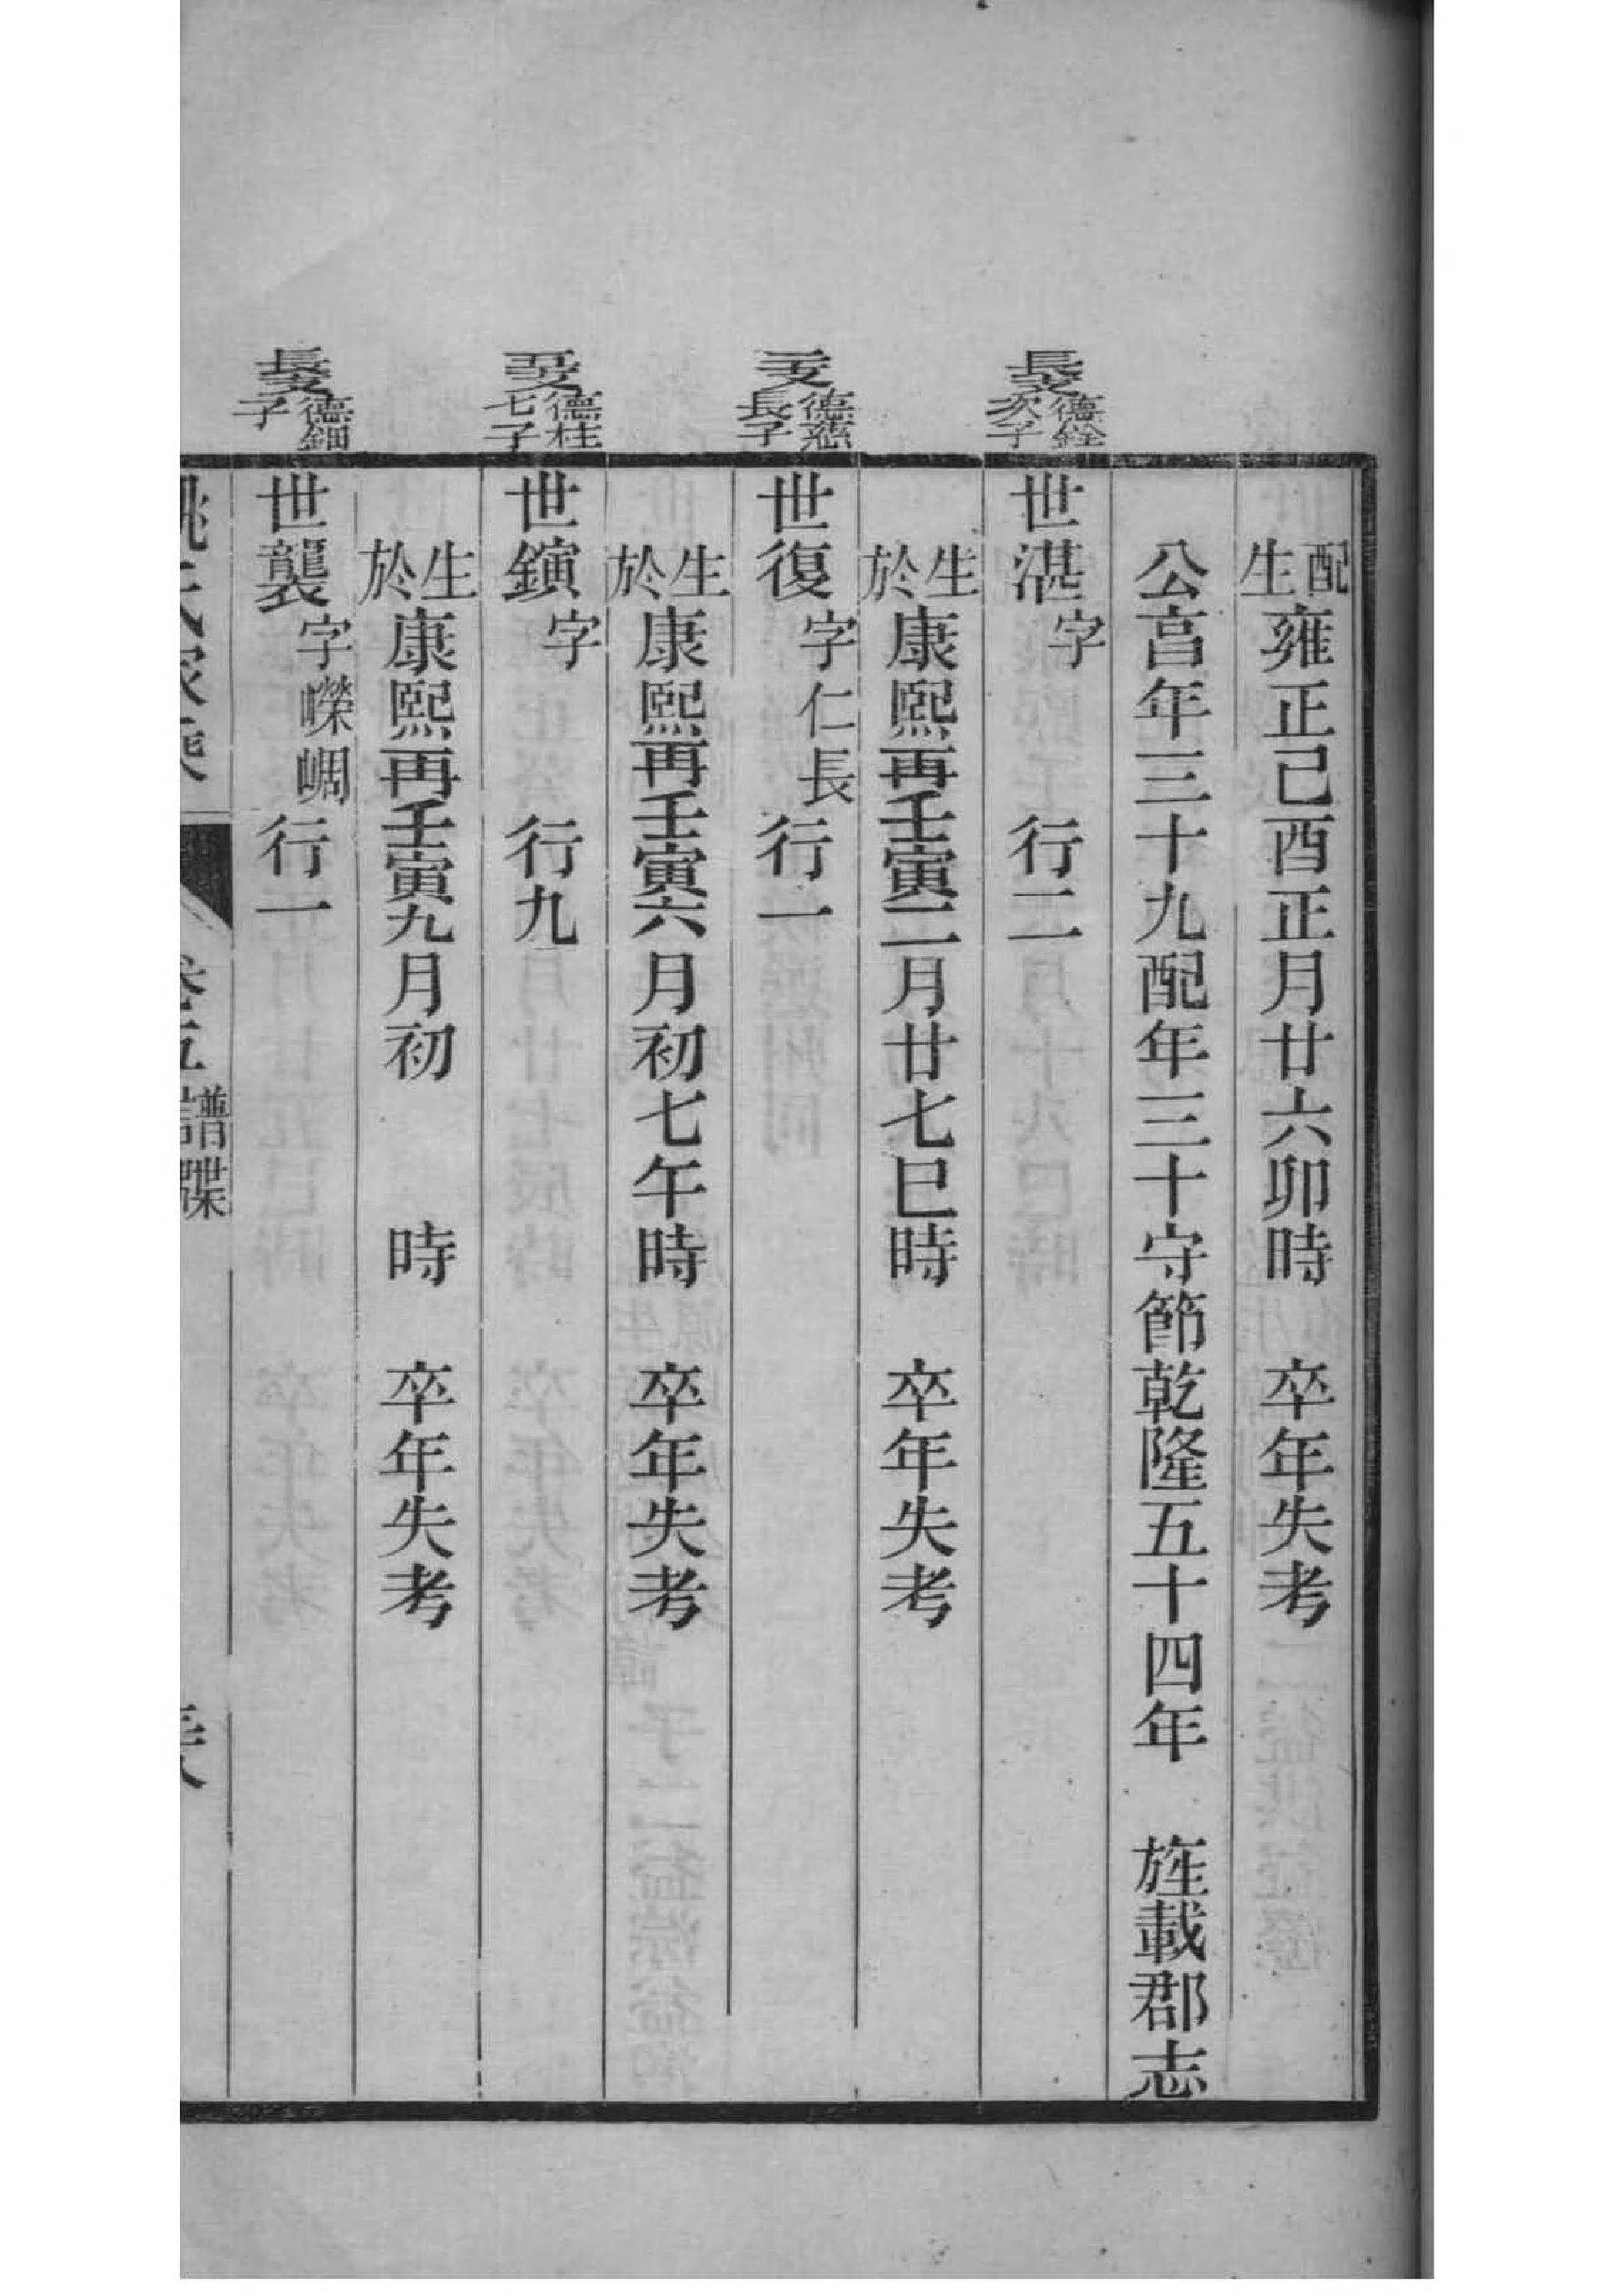 配生雍正己酉正月廿六卯時　卒年失考
公亯年三十九配年三十守節乾隆五十四年　旌載郡志
長支德銓次子
世湛字　行二
生於康熙再壬寅二月廿七巳時　卒年失考
二支德慈長子
世復字仁長行一
生於康熙再壬寅六月初七午時　卒年失考
五支德柱七子
世鑌字　行九
生於康熙再壬寅九月初　時　卒年失考
長支德鈿子
世襲字嶸崓行一
姚氏家乘　卷五譜牒